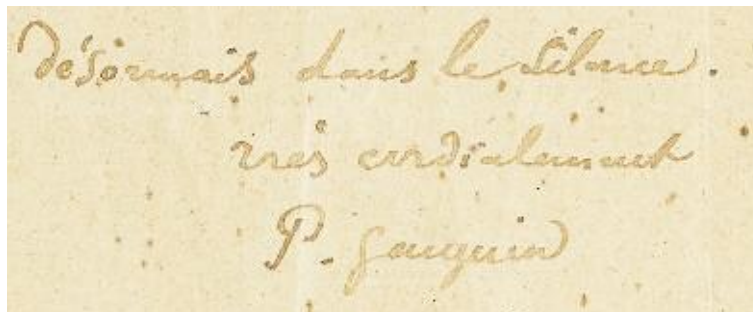 désormais dans le silence.
très cordialement
P. Gauguin